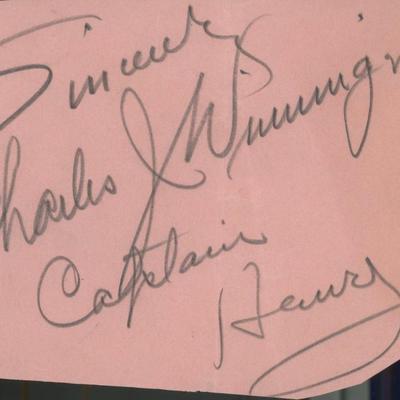 Sincerely
Charles J Winninger
Captain
Henry